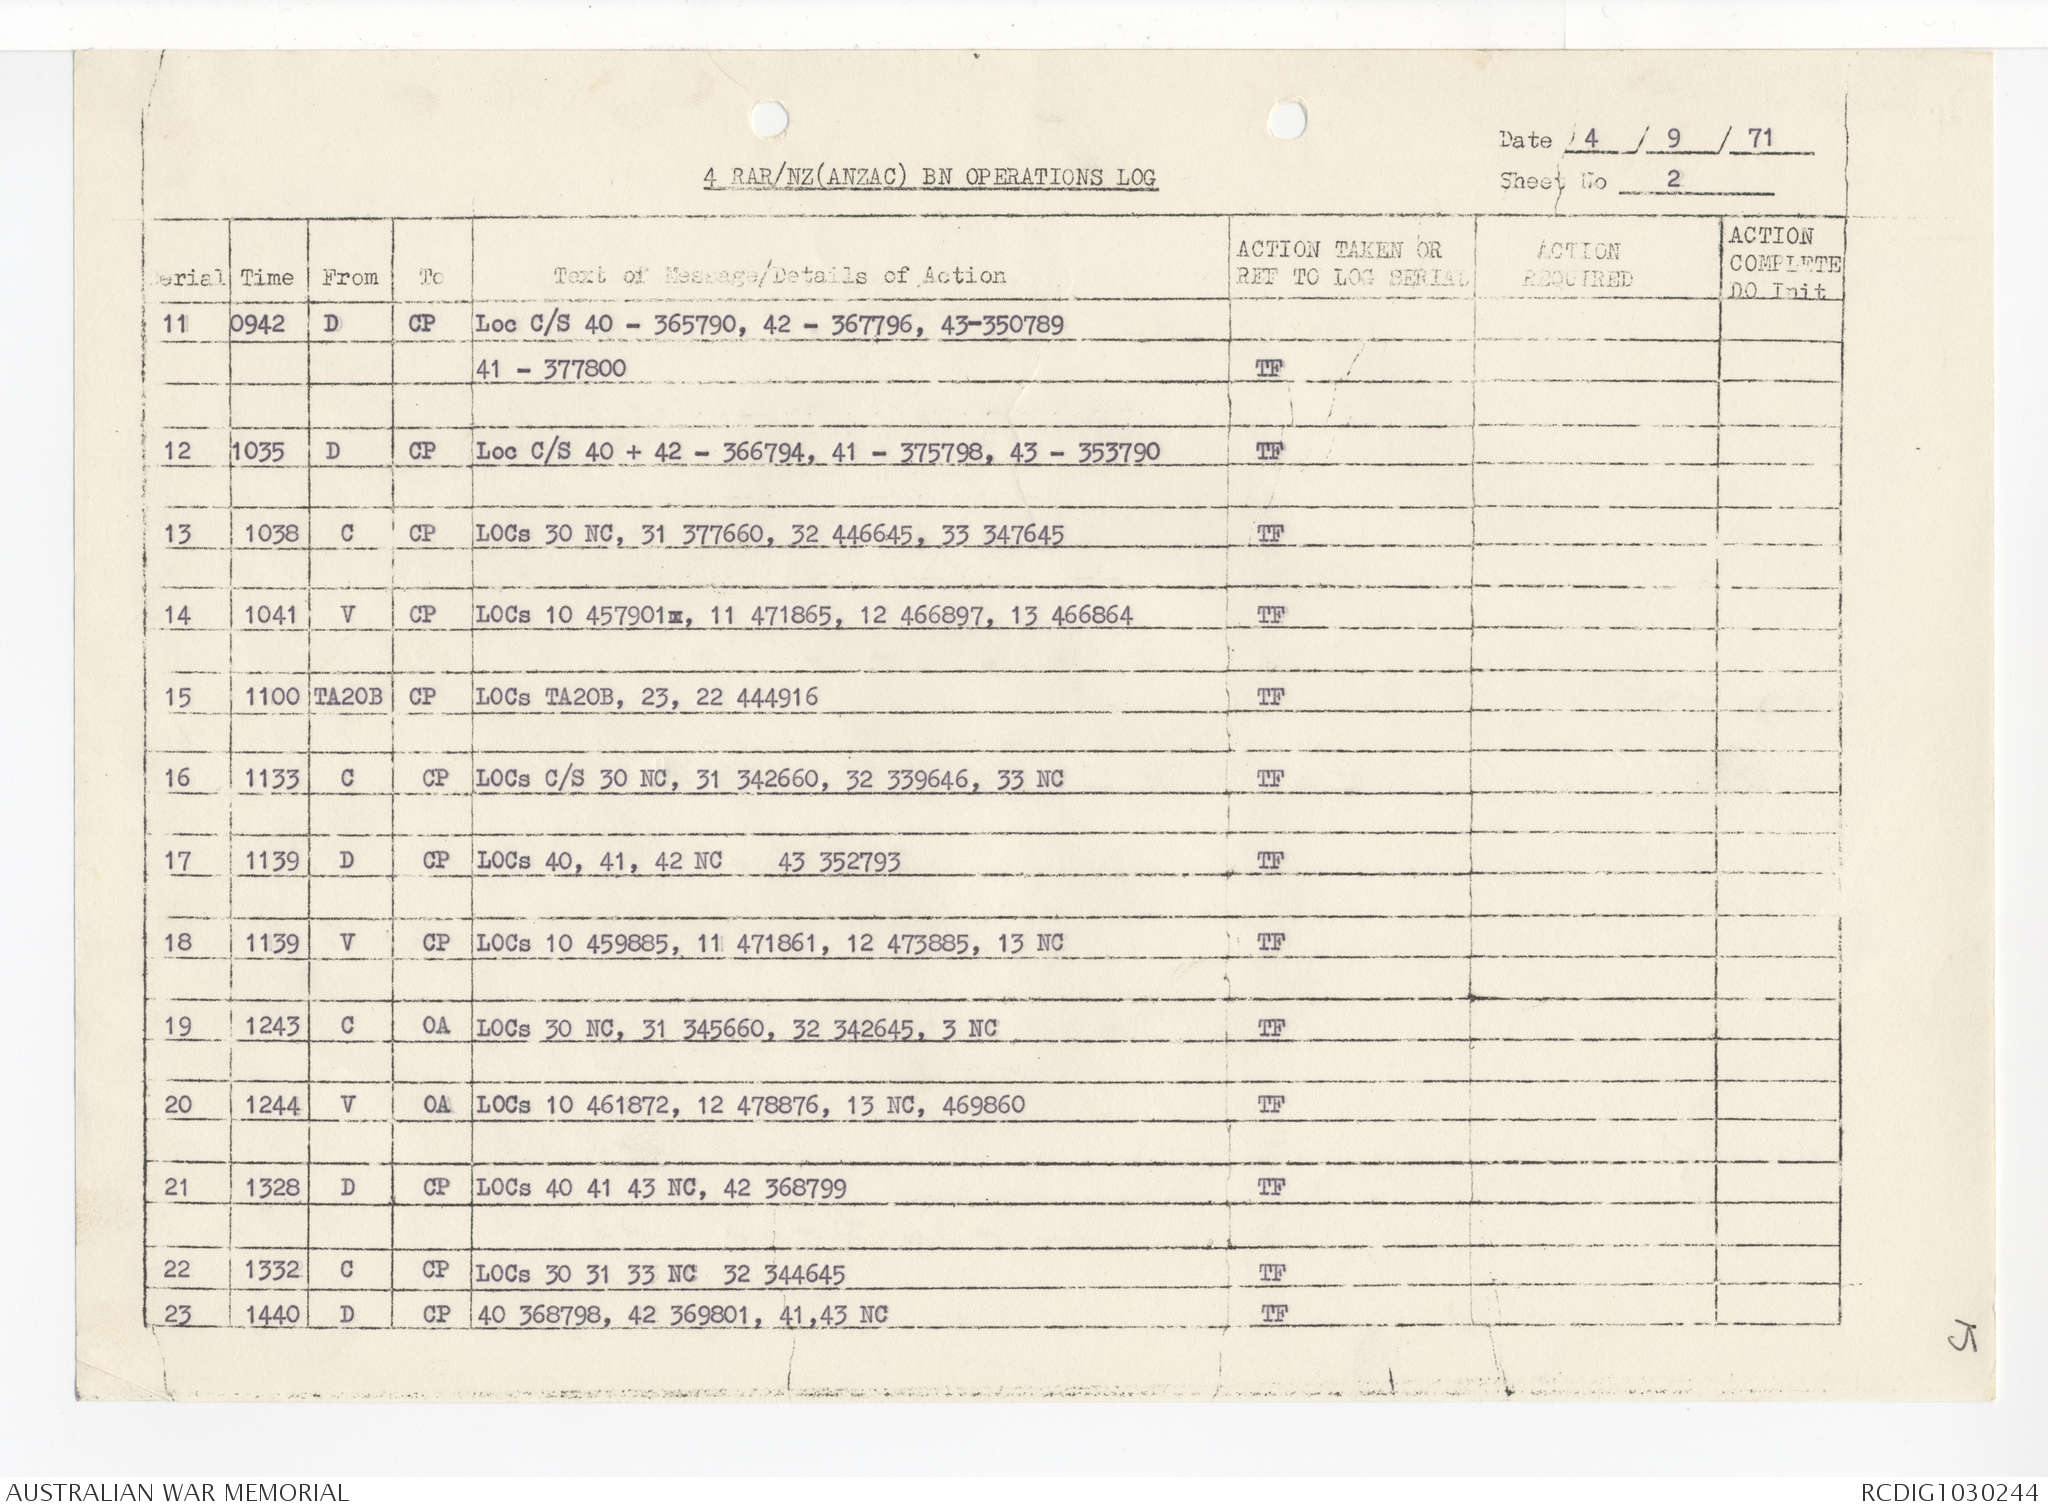 Date 4 / 9 / 71
4 RAR/NZ(ANZAC) BN OPERATIONS LOG
Sheet No 2
Serial Time From To Text of Message/Details of Action ACTION TAKEN OR REF TO LOG SERIAL ACTION REQUIRED ACTION COMPLETE DO Init
11 0942 D CP Loc C/S 40 - 365790, 42 - 367796, 43-350789
41 - 377800 TF
12 1035 D CP Loc C/S 40 + 42 - 366794, 41 - 375798, 43 - 353790 TF
13 1038 C CP LOCs 30 NC, 31 377660, 32 446645, 33 347645 TF
14 1041 V CP LOCs 10 457901, 11 471865, 12 466897, 13 466864 TF
15 1100 TA20B CP LOCs TA20B, 23, 22 444916 TF
16 1133 C CP LOCs C/S 30 NC, 31 342660, 32 339646, 33 NC TF
17 1139 D CP LOCs 40, 41, 42 NC 43 352793 TF
18 1139 V CP LOCs 10 459885, 11 471861, 12 473885, 13 NC TF
19 1243 C OA LOCs 30 NC, 31 345660, 32 342645, 3 NC TF
20 1244 V OA LOCs 10 461872, 12 478876, 13 NC, 469860 TF
21 1328 D CP LOCs 40 41 43 NC, 42 368799 TF
22 1332 C CP LOCs 30 31 33 NC 32 344645 TF
23 1440 D CP 40 368798, 42 369801, 41,43 NC TF
5
AUSTRALIAN WAR MEMORIAL
RCDIG1030244